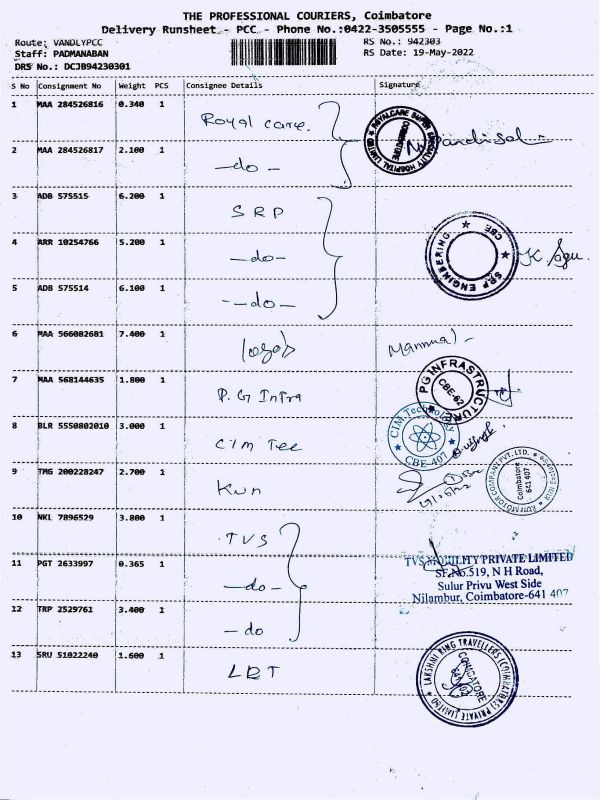 THE PROFESSIONAL COURIERS, Coimbatore
Delivery Runsheet - PCC - Phone No.:0422-3505555 - Page No.:1
Route: VANDLYPCC RS No.: 942303
Staff: PADMANABAN RS Date: 19-May-2022
DRS No.: DCJB94230301
S No Consignment No Weight PCS Consignee Details Signature
1 MAA 284526816 0.340 1 Royal care.
ROYALCARE SUPER SPECIALITY HOSPITAL LIMITED COIMBATORE
2 MAA 284526817 2.100 1 -do-
3 ADB 575515 6.200 1 SRP
4 ARR 10254766 5.200 1 -do-
SRP ENGINEERING CBE
5 ADB 575514 6.100 1 -do-
6 MAA 566002681 7.400 1
7 MAA 568144635 1.800 1 P.G Infra
PG INFRASTRUCTURE CBE-62
8 BLR 5550802010 3.000 1 CIM Tec
CIM Technology CBE-407
9 TMG 200228247 2.700 1 Kun
MOTOR COMPANY PVT. LTD. Coimbatore 641 407
10 NKL 7896529 3.800 1 TVS
11 PGT 2633997 0.365 1 -do-
TVS MOBILITY PRIVATE LIMITED
SF.No.519, N H Road,
Sulur Privu West Side
Nilambur, Coimbatore-641 407
12 TRP 2529761 3.400 1 -do
13 SRU 51022240 1.600 1 LRT
LAKSHMI RING TRAVELLERS (COIMBATORE) PRIVATE LIMITED COIMBATORE